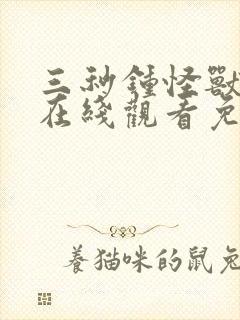 三秒鍾怪獸
在綫觀看免
養猫咪的鼠兔